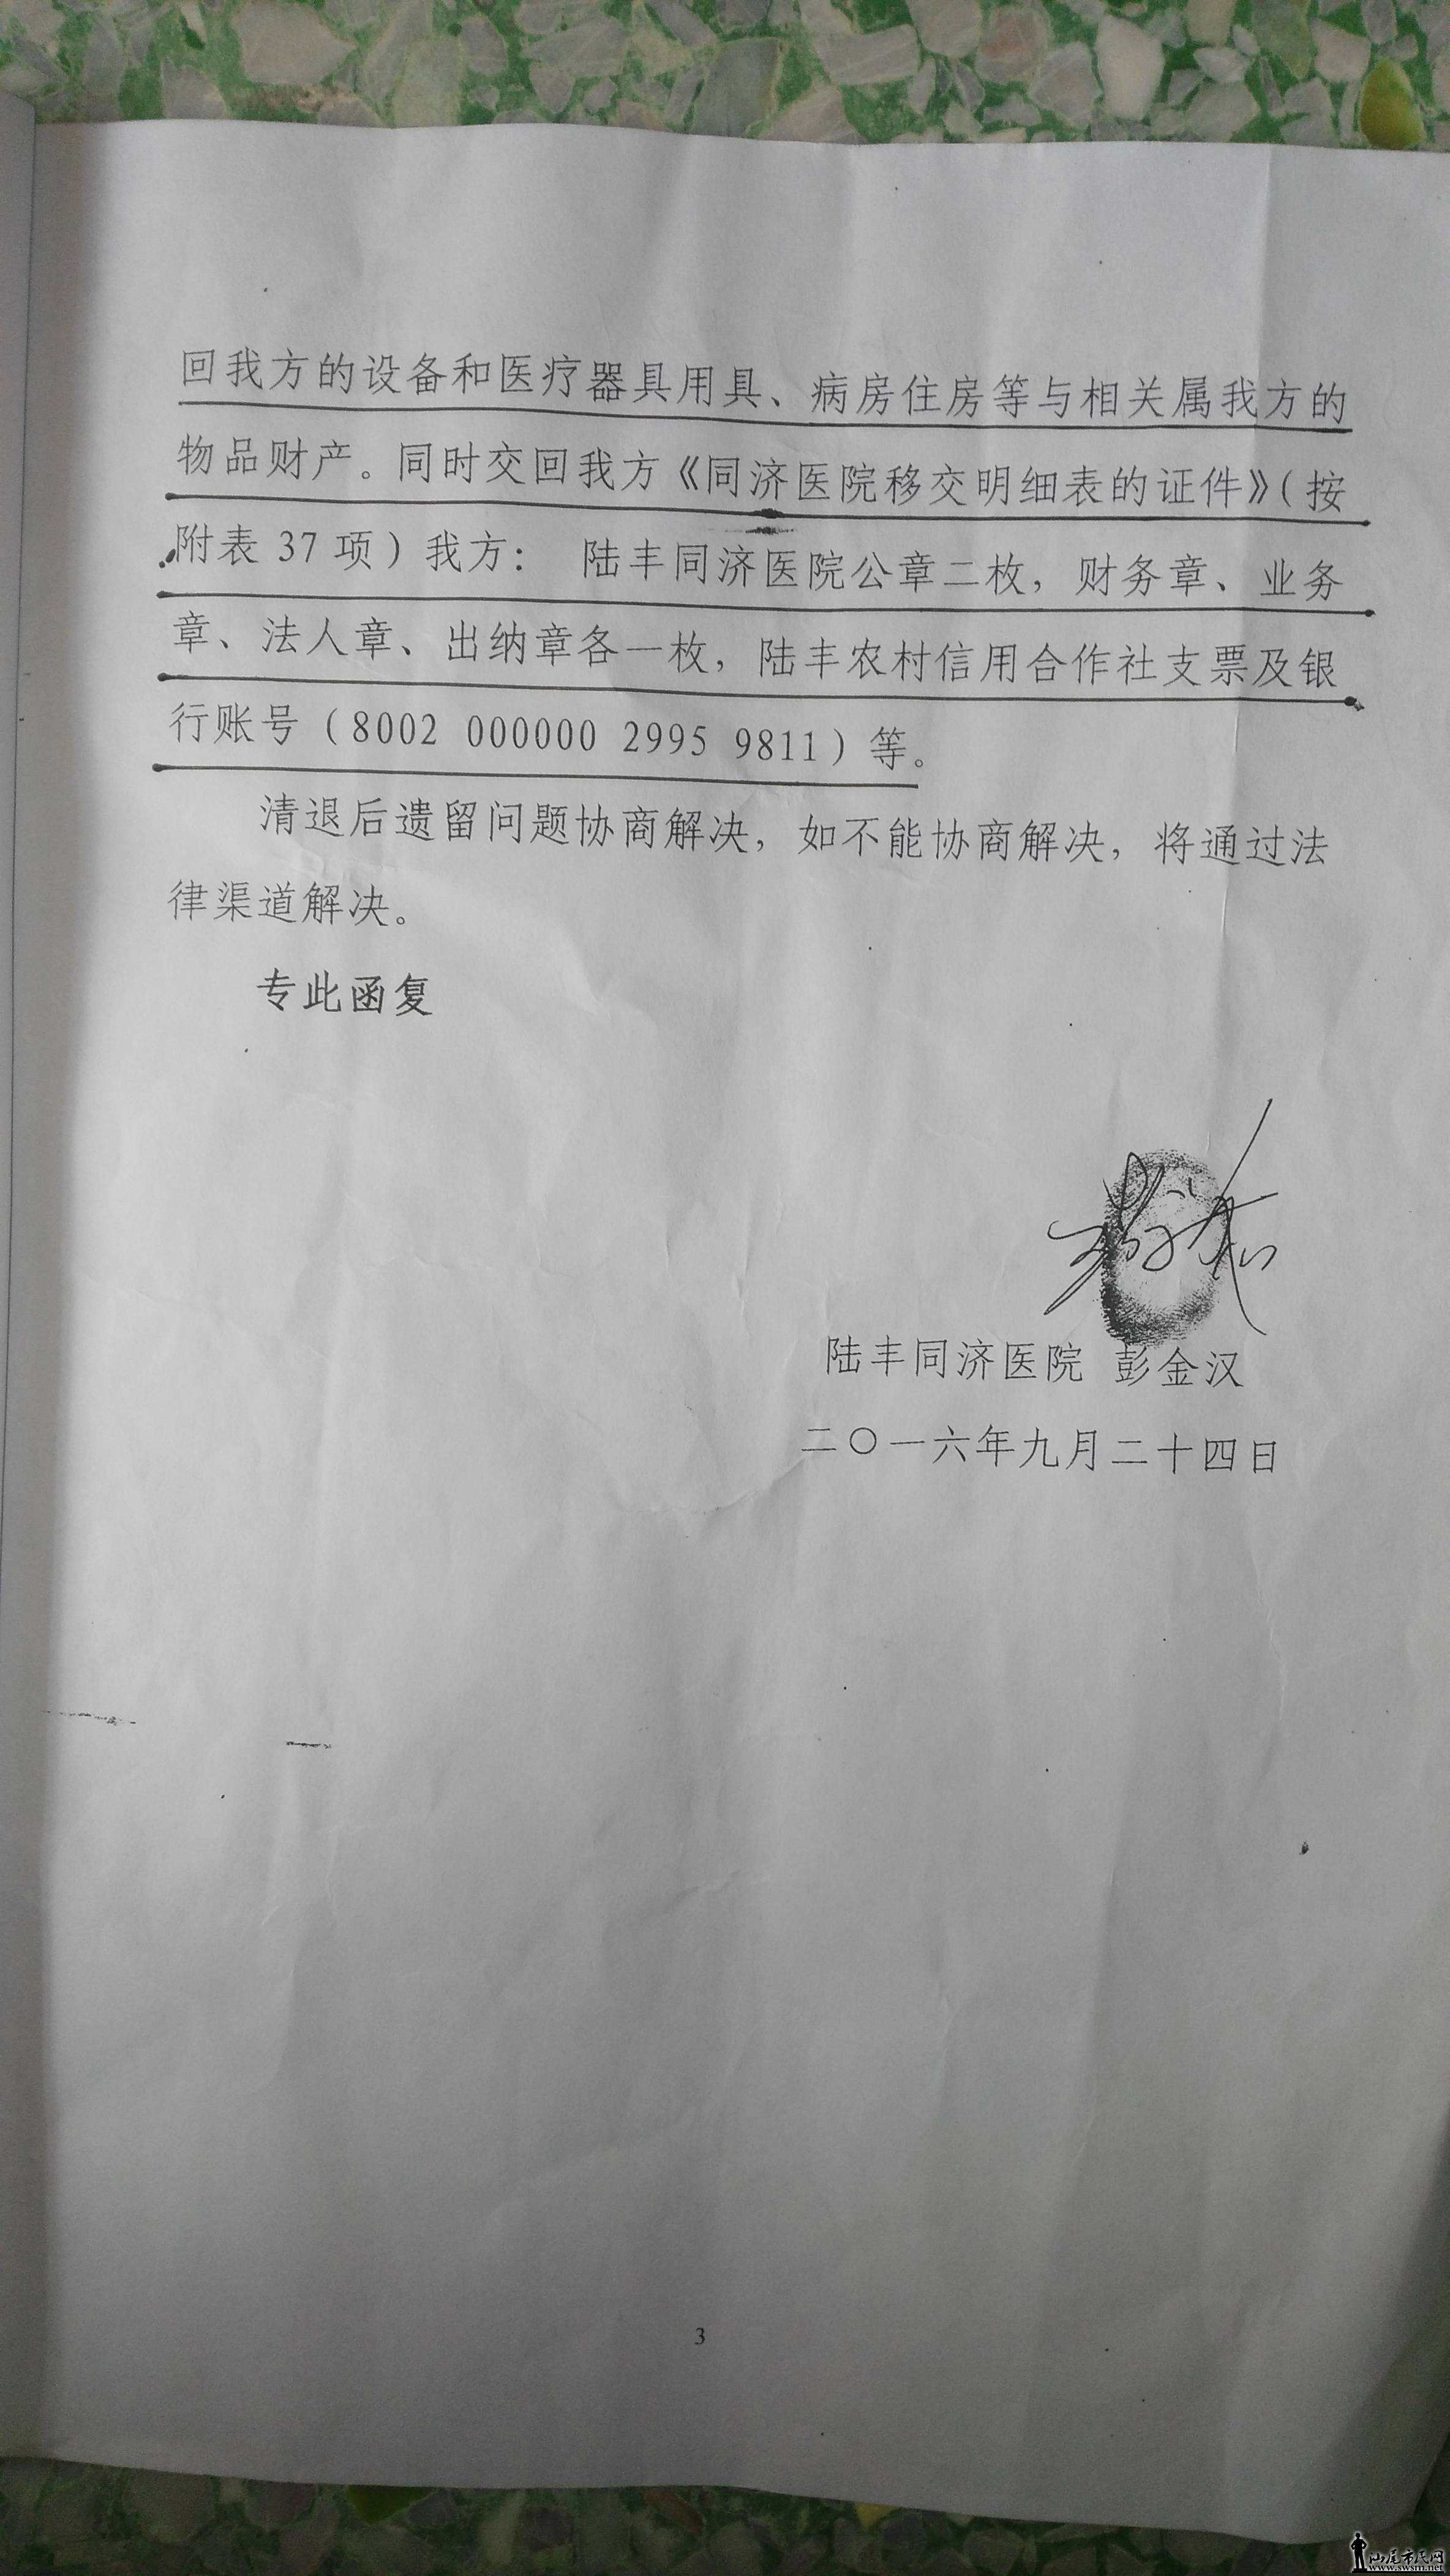 回我方的设备和医疗器具用具、病房住房等与相关属我方的
物品财产。同时交回我方《同济医院移交明细表的证件》（按
附表 37 项）我方： 陆丰同济医院公章二枚，财务章、业务
章、法人章、出纳章各一枚，陆丰农村信用合作社支票及银
行账号（8002 000000 2995 9811）等。
清退后遗留问题协商解决，如不能协商解决，将通过法
律渠道解决。
专此函复
陆丰同济医院 彭金汉
二〇一六年九月二十四日
3
汕尾市民网
www.swsm.net